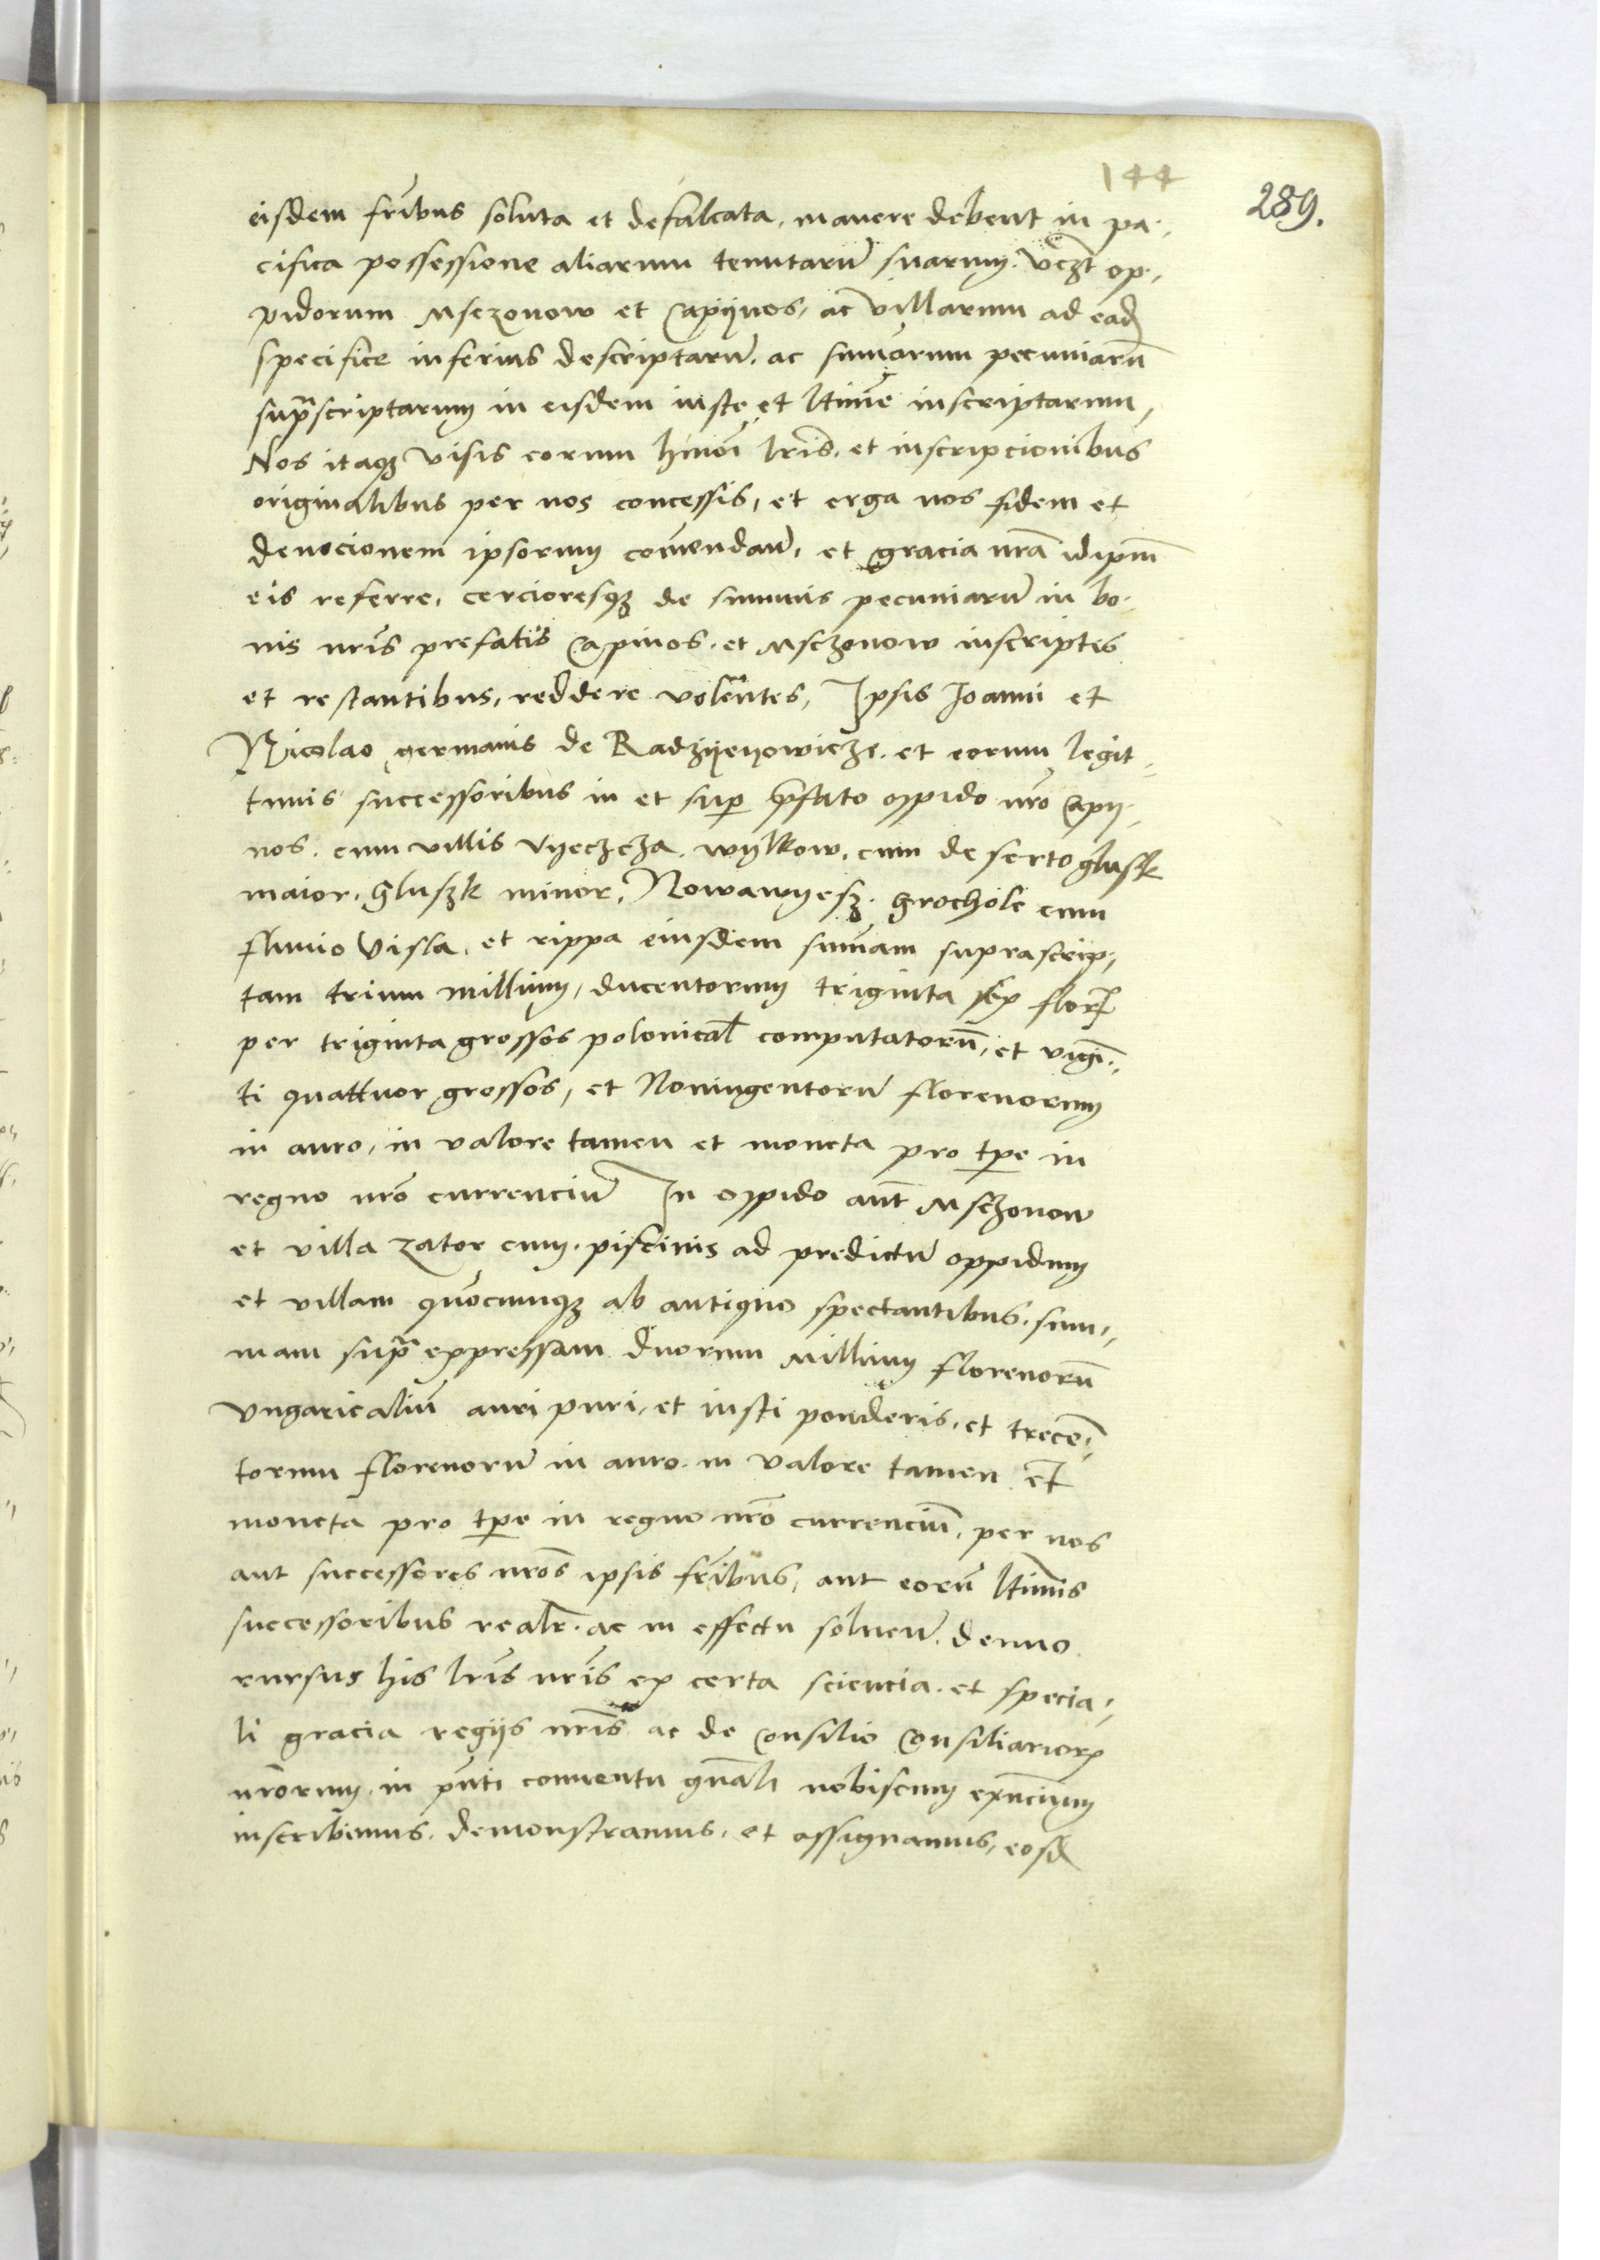 144
289.
eisdem fribus soluta et defalcata, manere debent in pa-
cifica possessione aliarum tenutaru suarum. Vczt op-
pidorum Msczonow et Capijnos, ac villarum ad ead
specifice inferius descriptaru, ac sumarum pecuniaru
supscriptarum in eisdem iuste et ltime inscriptarum,
Nos itaqz visis eorum hmoi lris, et inscripcionibus
originalibus per nos concessis, et erga nos fidem et
deuocionem ipsorum comendan, et gracia nra idipm
eis referre, cercioresqz de summis pecuniaru in bo-
nis nris prefatis Capinos, et Msczonow inscriptis
et restantibus, reddere volentes, Ipsis Ioanni et
Nicolao germanis de Radzijeyowicze, et eorum legit-
timis successoribus in et sup pfato oppido nro Capij-
nos. cum villis Vyeczcza. Wylkow, cum deserto Glusk
maior, Gluszk minor, Nowawyesz. Grochole cum
fluuio Visla, et rippa eiusdem sumam suprascrip-
tam trium millium, ducentorum triginta sex flor
per triginta grossos polonical computatoru, et vigi-
ti quattuor grossos, et Noningentoru florenorum
in auro, in valore tamen et moneta pro tpe in
regno nro currenciu In oppido aut Msczonow
et villa Zator cum piscinis ad predictu oppidum
et villam quocumqz ab antiquo spectantibus, sum-
mam sup expressam duorum Millium florenoru
Vngaricaliu auri puri, et iusti ponderis, et trece-
torum florenoru in auro in valore tamen et
moneta pro tpe in regno nro currenciu, per nos
aut successores nros ipsis fribus, aut eoru ltimis
successoribus realr. ac in effectu soluen. denuo
rursus his lris nris ex certa sciencia et specia-
li gracia regijs nris ac de Consilio Consiliarior
nrorum, in pnti conuentu gnali nobiscum exncium
inscribimus. demonstramus, et assignamus, eosd